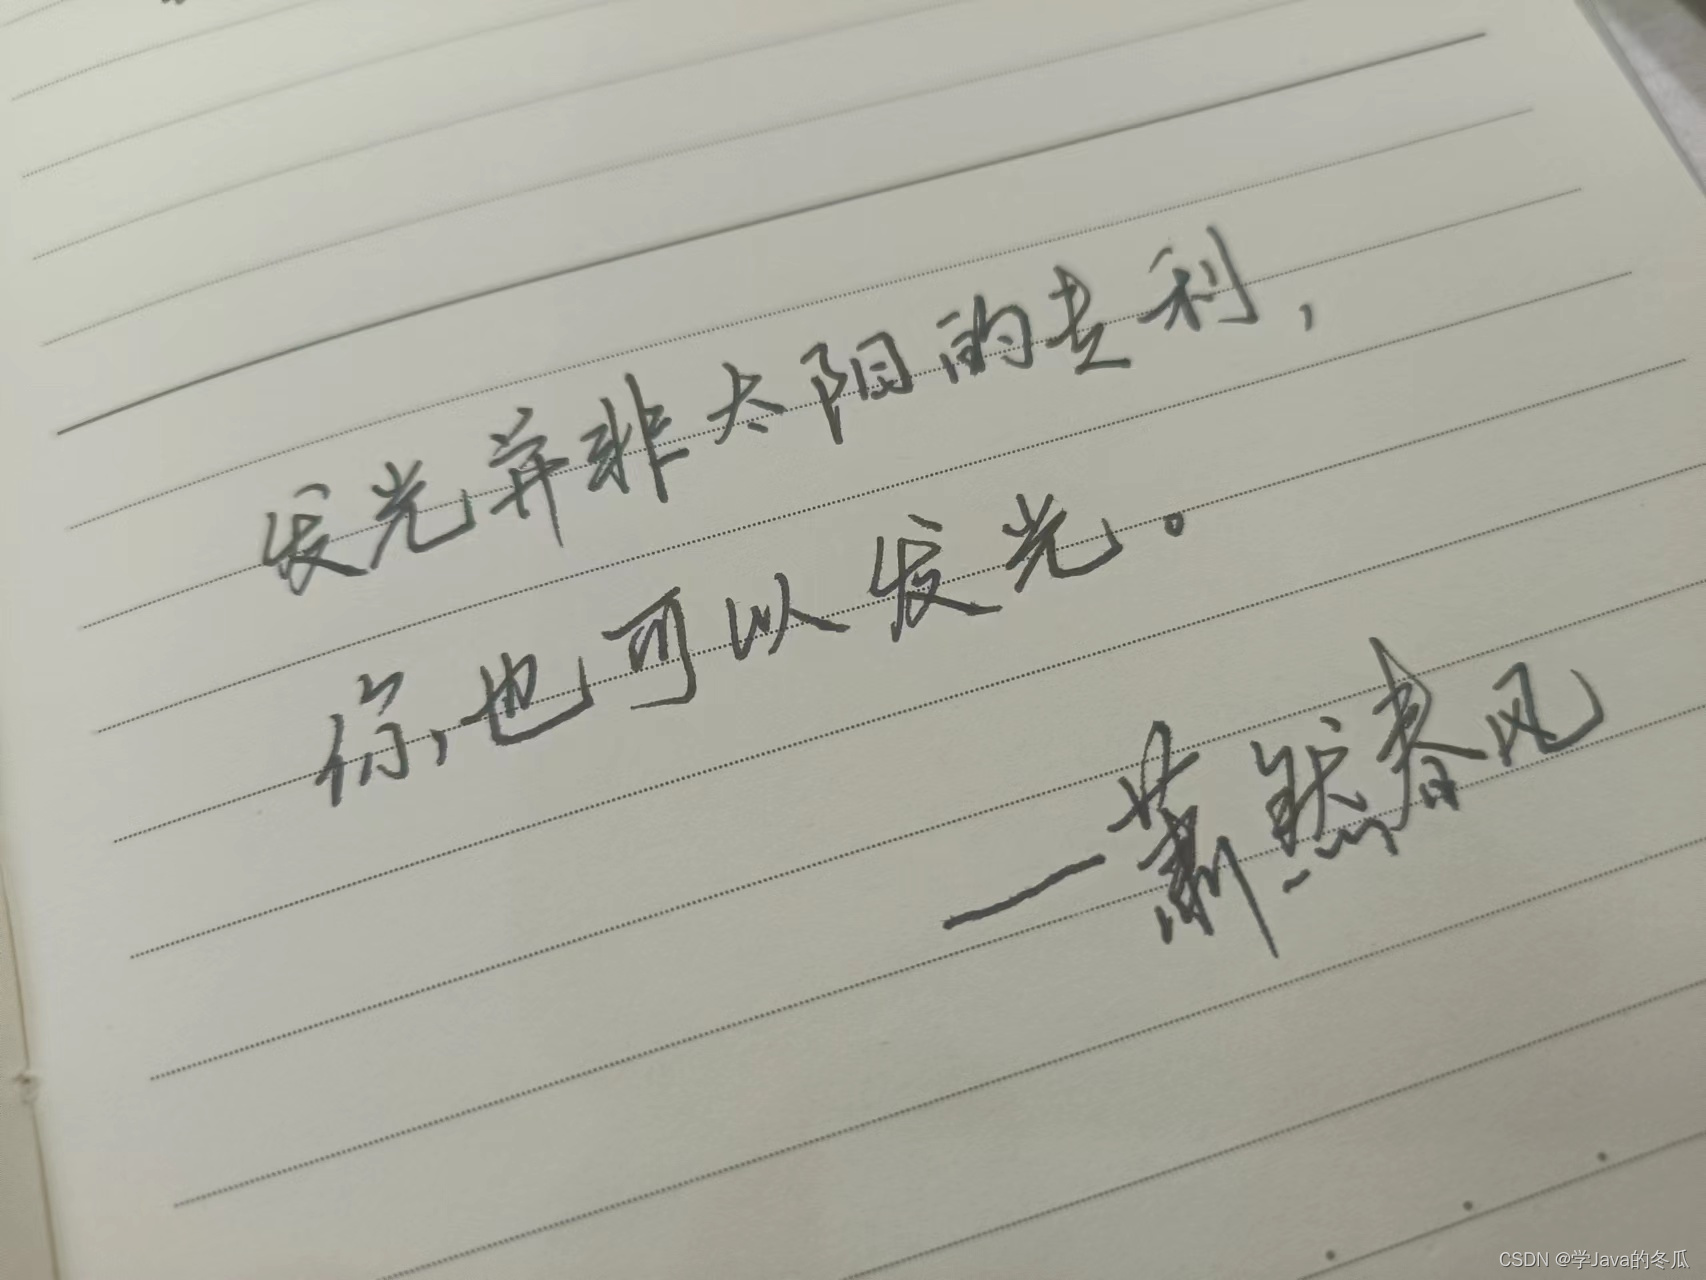 发光并非太阳的专利，
你，也可以发光。
—萧然春风
CSDN @学Java的冬瓜